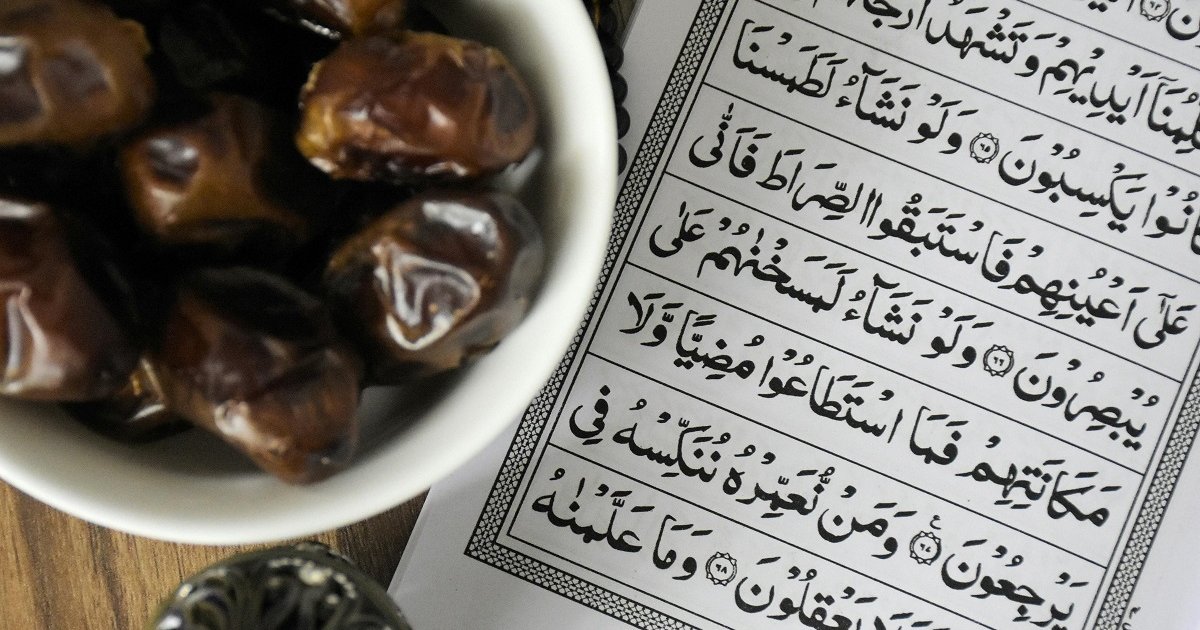 اَيْدِيْهِمْ وَتَشْهَدُ
كَانُوْا يَكْسِبُوْنَ ۝٦٥ وَلَوْ نَشَآءُ لَطَمَسْنَا
عَلٰٓى اَعْيُنِهِمْ فَاسْتَبَقُوا الصِّرَاطَ فَاَنّٰى
يُبْصِرُوْنَ ۝٦٦ وَلَوْ نَشَآءُ لَمَسَخْنٰهُمْ عَلٰى
مَكَانَتِهِمْ فَمَا اسْتَطَاعُوْا مُضِيًّا وَّلَا
يَرْجِعُوْنَ ۝٦٧ وَمَنْ نُّعَمِّرْهُ نُنَكِّسْهُ فِى
يَعْقِلُوْنَ ۝٦٨ وَمَا عَلَّمْنٰهُ